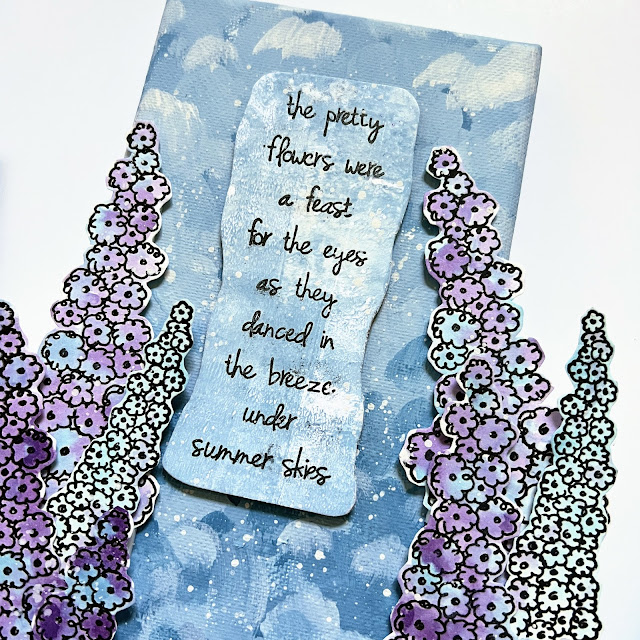 the pretty
flowers were
a feast
for the eyes
as they
danced in
the breeze.
under
summer skies